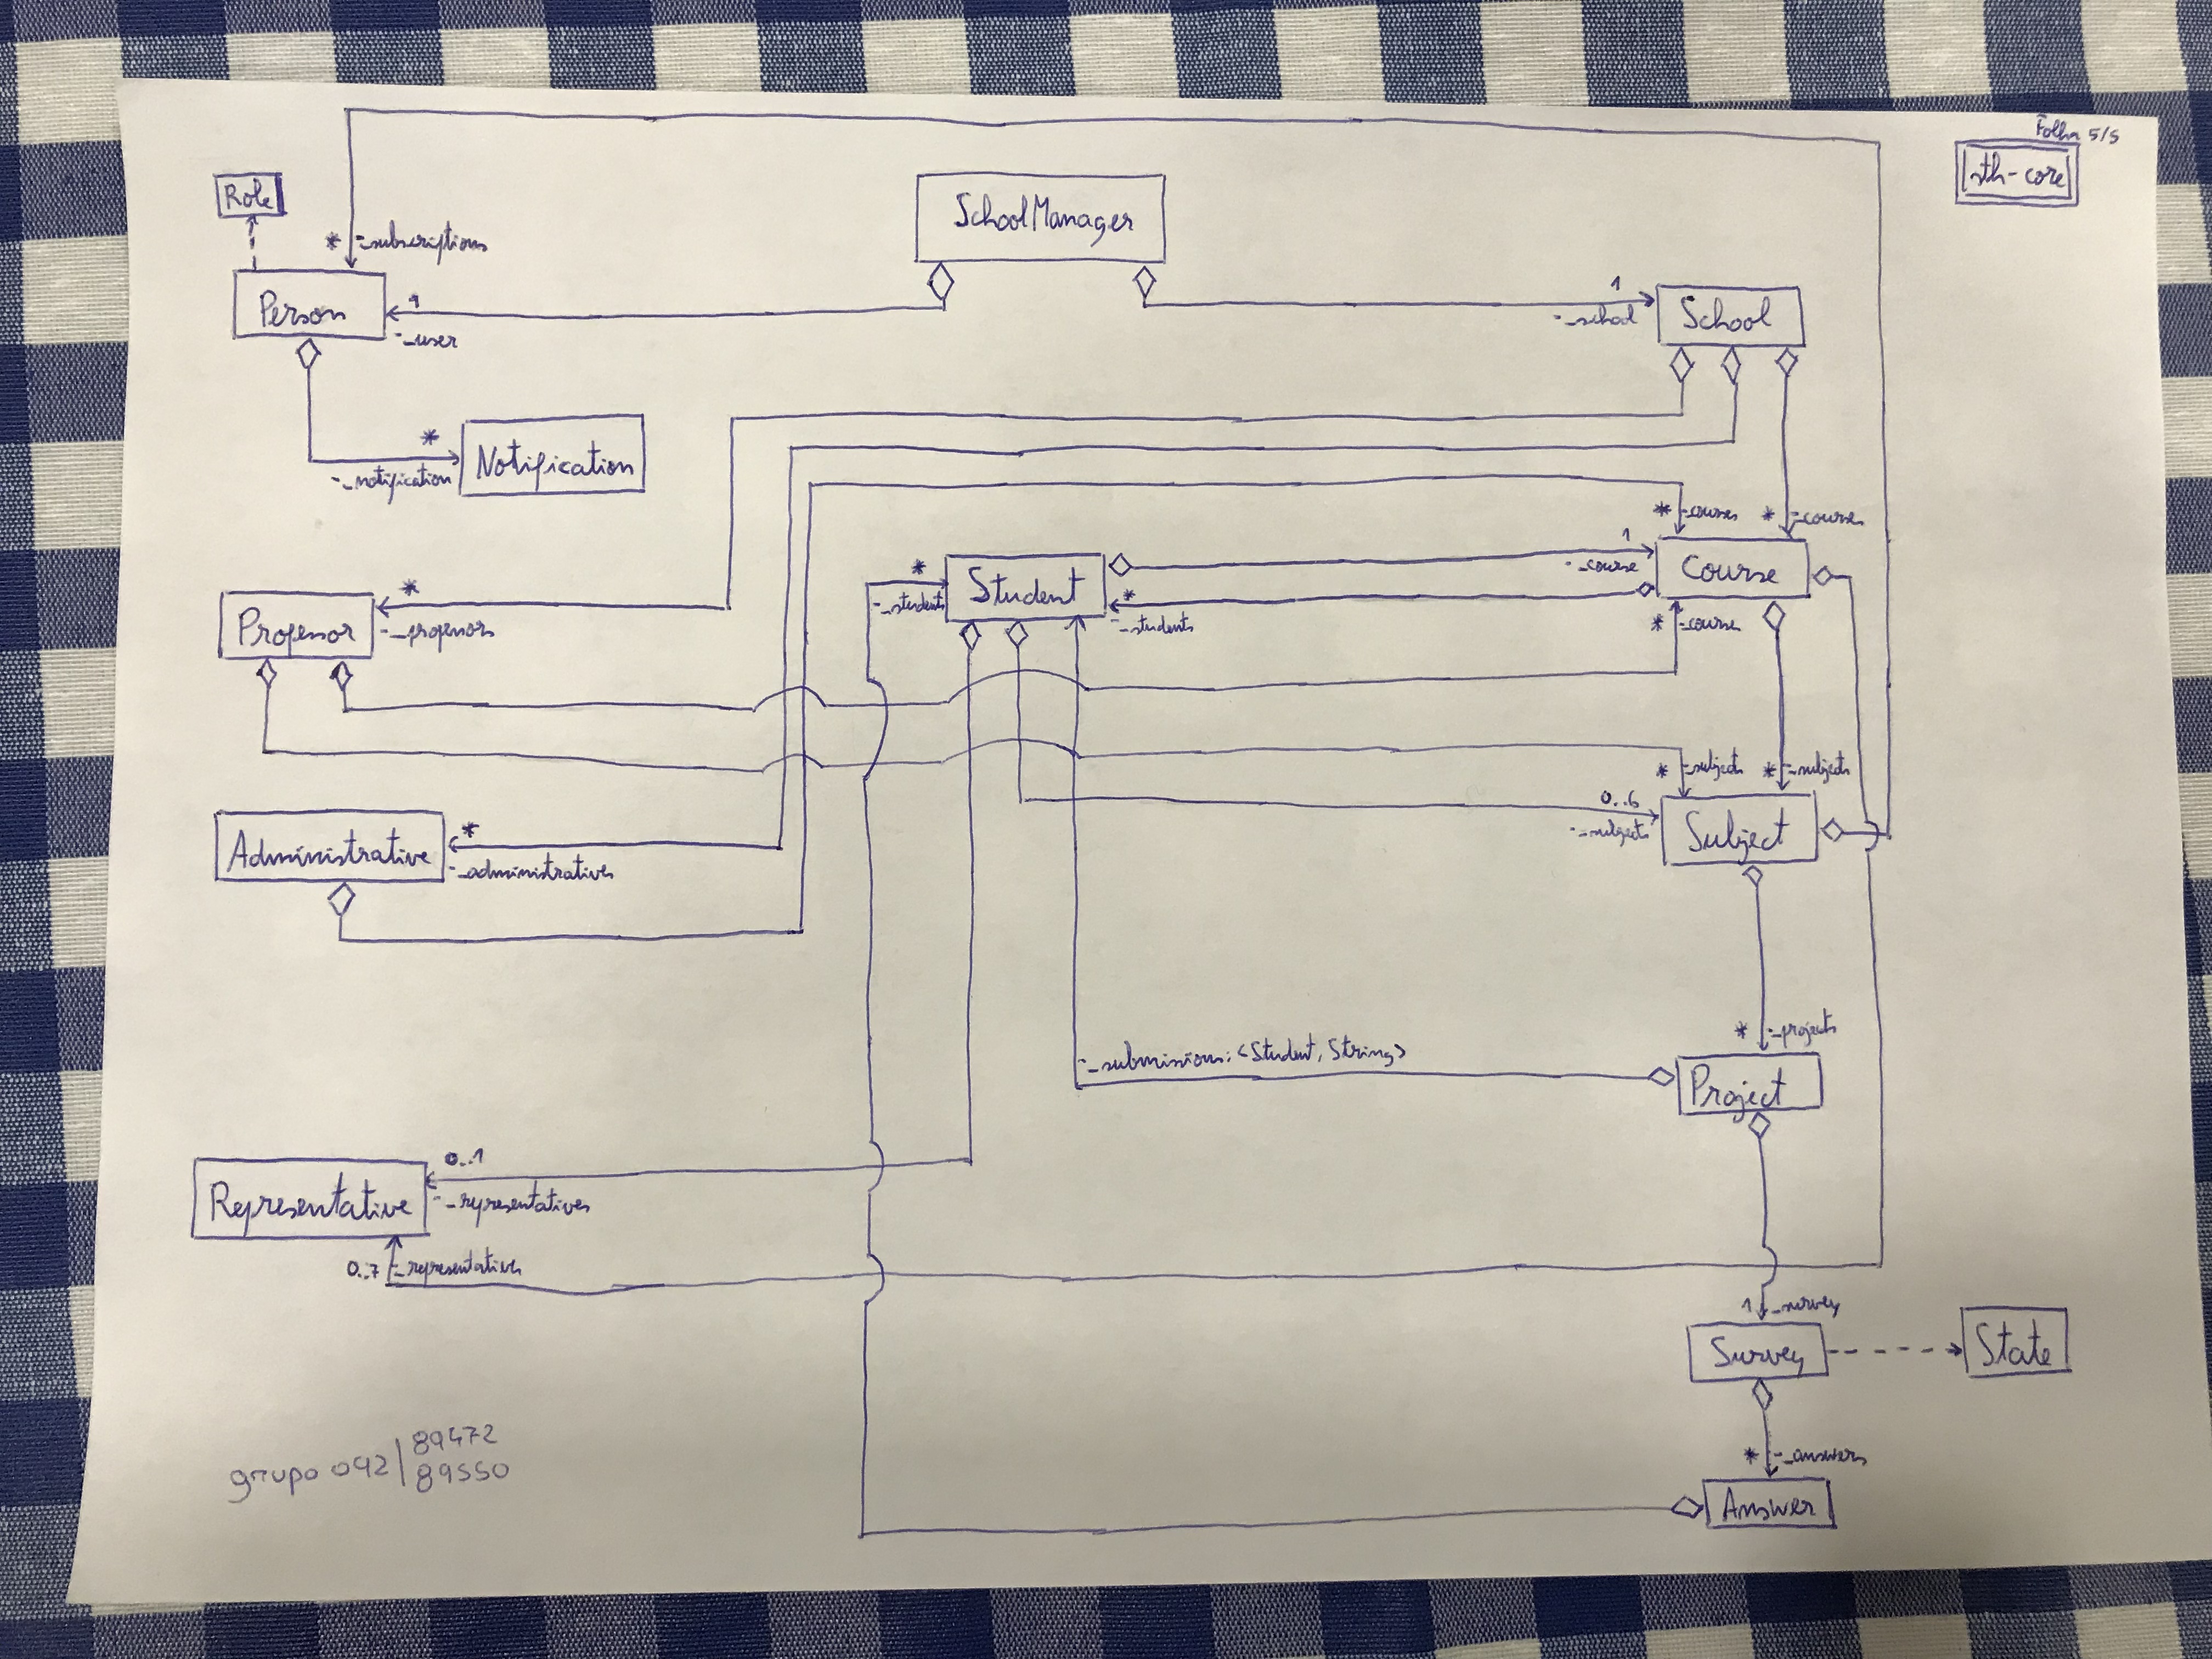 Folha 5/5
sth-core
Role
SchoolManager
* -_subscriptions
Person
1
-_user
1
-_school
School
*
-_notification
Notification
* -_courses
* -_courses
1
-_course
Course
*
-_students
Student
*
-_students
* -_course
Professor
*
-_professors
* -_subjects
* -_subjects
0..6
-_subjects
Subject
Administrative
*
-_administratives
* -_projects
-_submissions:<Student, String>
Project
0..1
-_representatives
Representative
0..7 -_representatives
1 -_survey
Survey
State
* -_answers
Answer
grupo 092 | 89472
89550